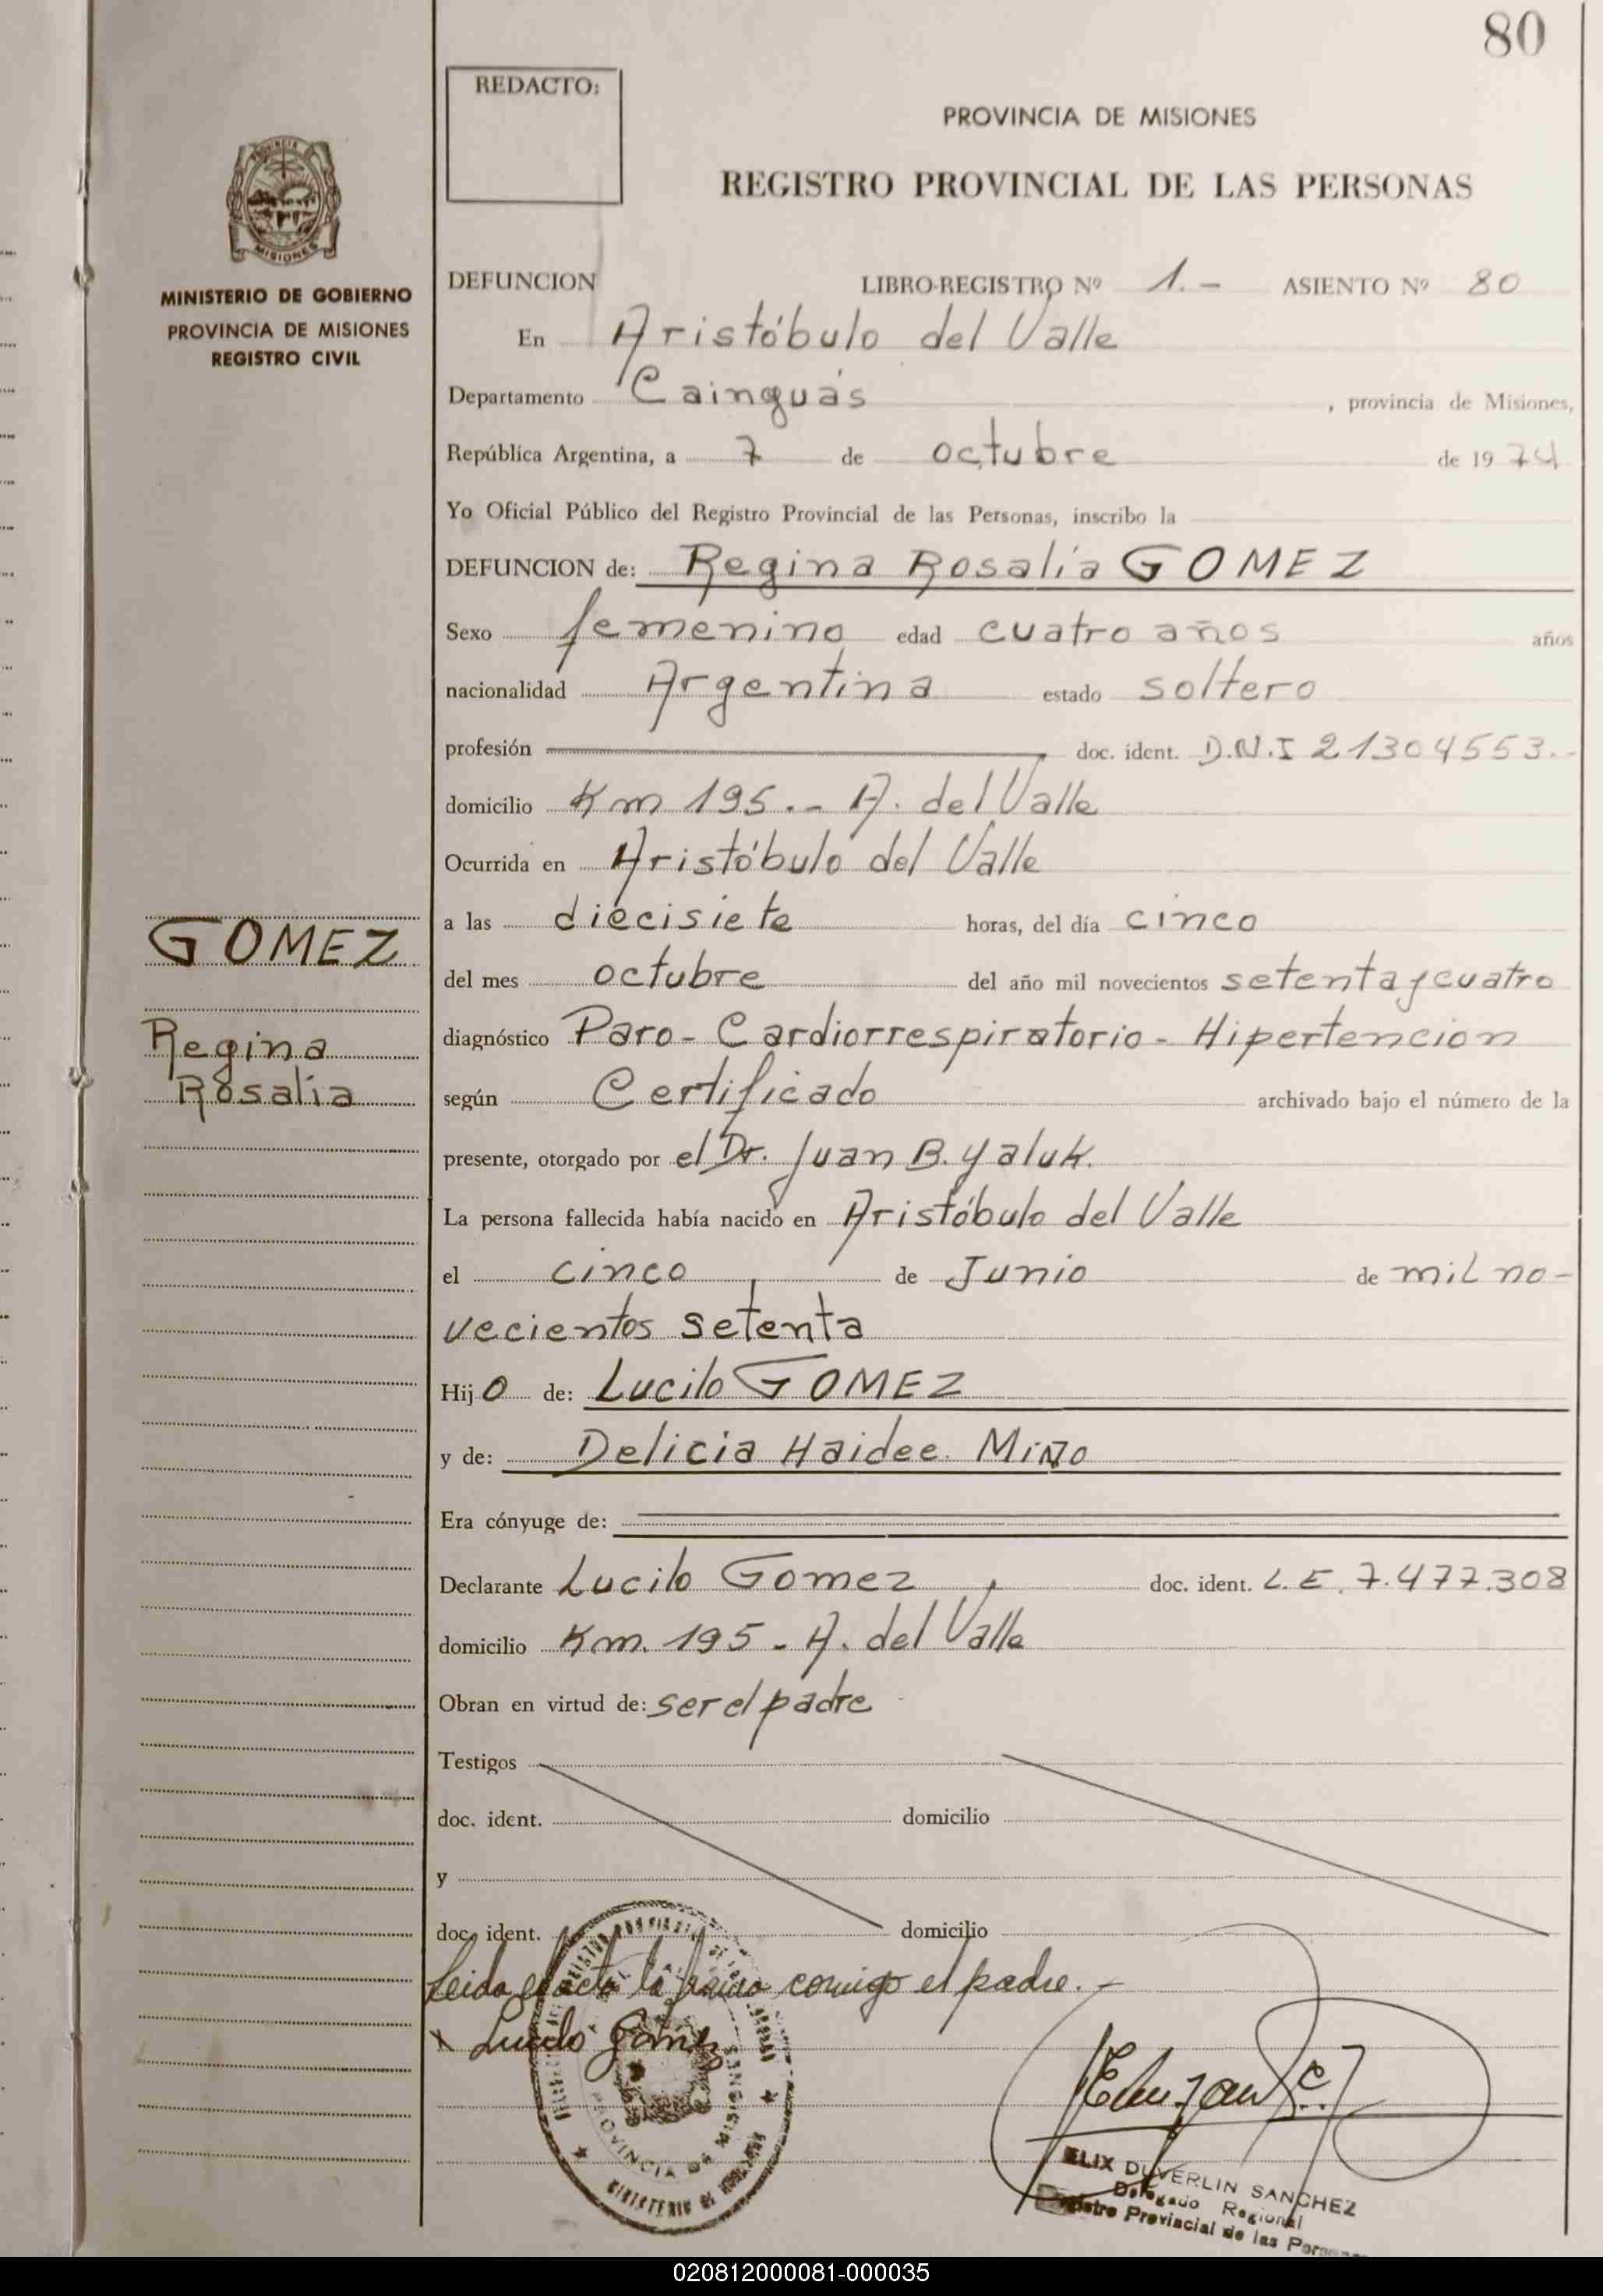 80
REDACTO:
PROVINCIA DE MISIONES
REGISTRO PROVINCIAL DE LAS PERSONAS
MINISTERIO DE GOBIERNO
PROVINCIA DE MISIONES
REGISTRO CIVIL
DEFUNCION LIBRO-REGISTRO Nº 1.- ASIENTO Nº 80
En Aristóbulo del Valle
Departamento Cainguás, provincia de Misiones,
República Argentina, a 7 de octubre de 1974
Yo Oficial Público del Registro Provincial de las Personas, inscribo la
DEFUNCION de: Regina Rosalía GOMEZ
Sexo femenino edad cuatro años años
nacionalidad Argentina estado soltero
profesión doc. ident. D.N.I 21304553.-
domicilio Km 195.- A. del Valle
Ocurrida en Aristóbulo del Valle
a las diecisiete horas, del día cinco
del mes octubre del año mil novecientos setenta y cuatro
diagnóstico Paro - Cardiorrespiratorio - Hipertencion
según Certificado archivado bajo el número de la
presente, otorgado por el Dr. Juan B. Yaluk.
La persona fallecida había nacido en Aristóbulo del Valle
el cinco de Junio de mil no-
vecientos setenta
Hijo de: Lucilo GOMEZ
y de: Delicia Haidee Miño
Era cónyuge de:
Declarante Lucilo Gomez doc. ident. L.E. 7.477.308
domicilio Km. 195 - A. del Valle
Obran en virtud de: ser el padre
Testigos
doc. ident. domicilio
y
doc. ident. domicilio
Leida el acta la firma comigo el padre.-
x Lucilo Gomez
GOMEZ
Regina
Rosalia
PROVINCIA DE MISIONES
MINISTERIO DE
ELIX DUVERLIN SANCHEZ
Delegado Regional
Registro Provincial de las Personas
020812000081-000035